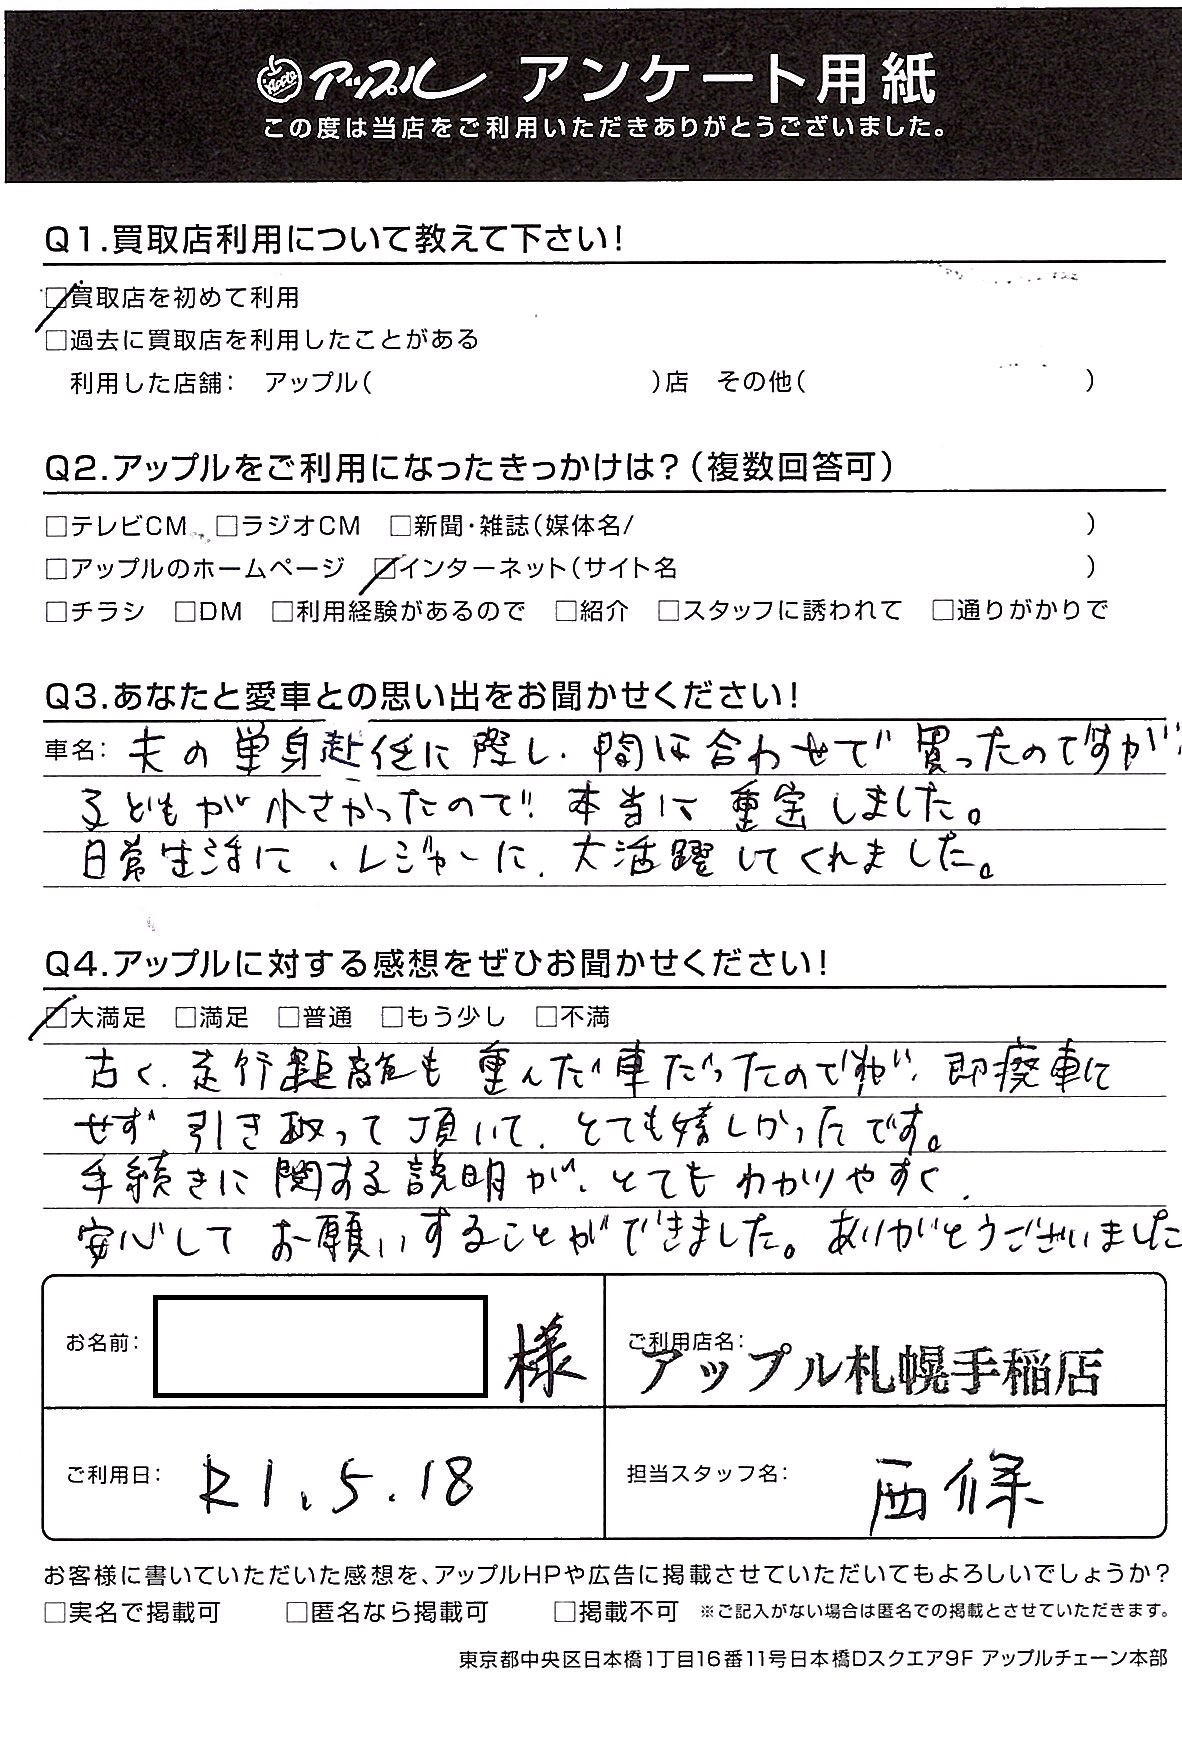 Apple アップル アンケート用紙
この度は当店をご利用いただきありがとうございました。
Q1.買取店利用について教えて下さい!
☑買取店を初めて利用
□過去に買取店を利用したことがある
利用した店舗: アップル( )店 その他( )
Q2.アップルをご利用になったきっかけは?(複数回答可)
□テレビCM □ラジオCM □新聞・雑誌(媒体名/ )
□アップルのホームページ ☑インターネット(サイト名 )
□チラシ □DM □利用経験があるので □紹介 □スタッフに誘われて □通りがかりで
Q3.あなたと愛車との思い出をお聞かせください!
車名: 夫の単身赴任に際し、間に合わせで買ったのですが、
子どもが小さかったので、本当に重宝しました。
日常生活に、レジャーに、大活躍してくれました。
Q4.アップルに対する感想をぜひお聞かせください!
☑大満足 □満足 □普通 □もう少し □不満
古く、走行距離も重んだ車だったのですが、即廃車に
せず引き取って頂いて、とても嬉しかったです。
手続きに関する説明が、とてもわかりやすく、
安心してお願いすることができました。ありがとうございました
お名前: 様
ご利用店名: アップル札幌手稲店
ご利用日: R1.5.18
担当スタッフ名: 西條
お客様に書いていただいた感想を、アップルHPや広告に掲載させていただいてもよろしいでしょうか?
□実名で掲載可 □匿名なら掲載可 □掲載不可 ※ご記入がない場合は匿名での掲載とさせていただきます。
東京都中央区日本橋1丁目16番11号日本橋Dスクエア9F アップルチェーン本部